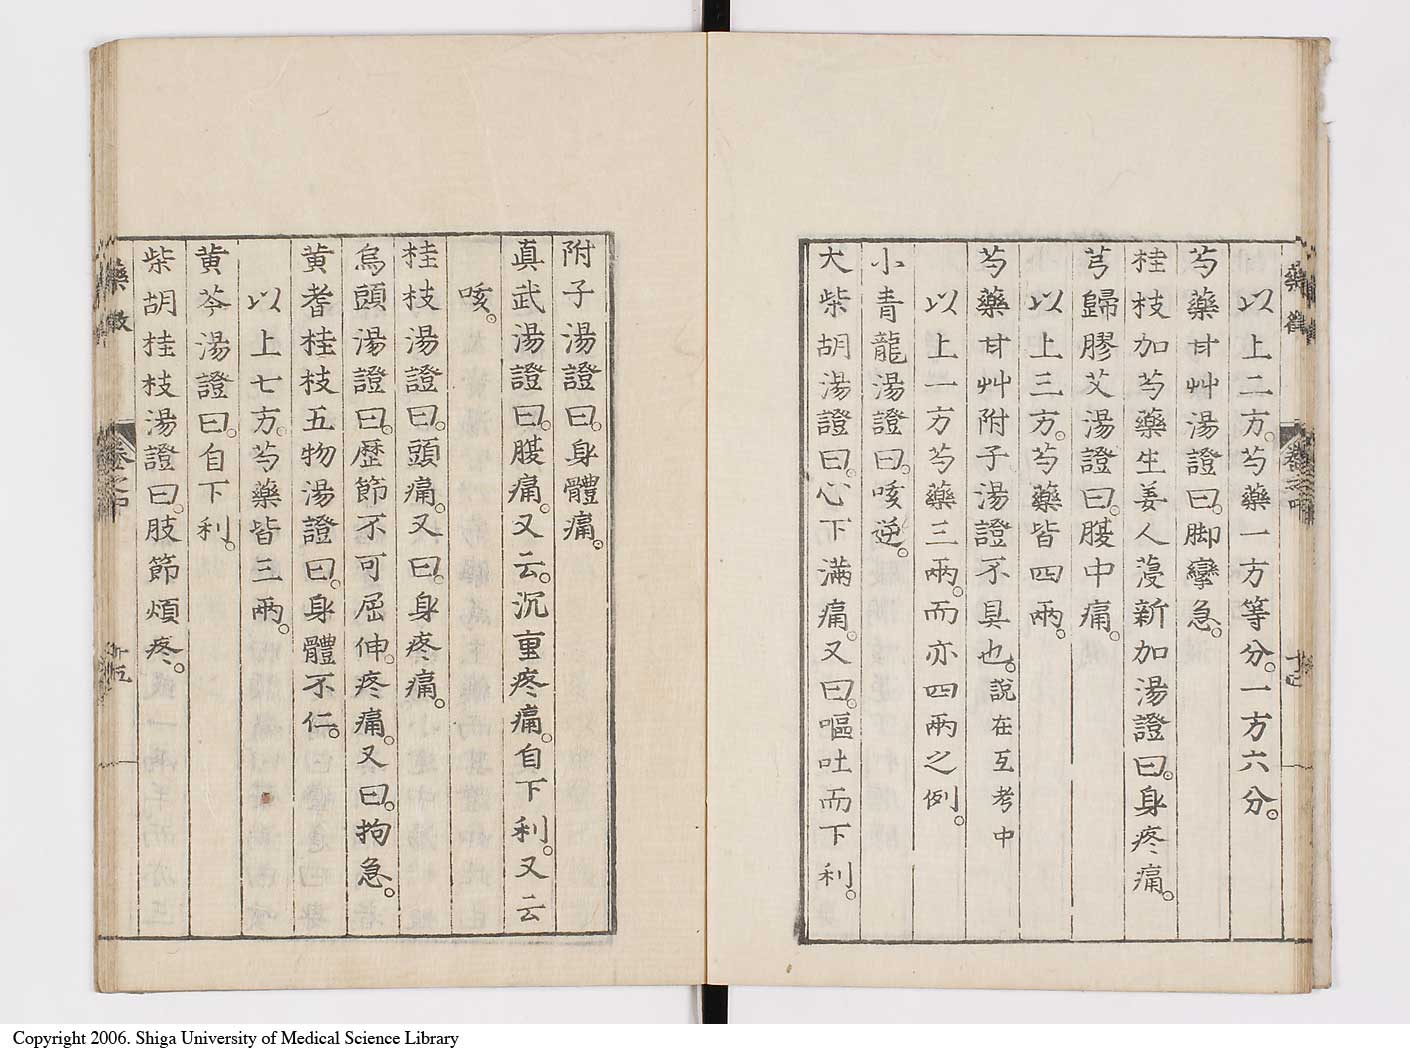 以上二方。芍藥一方等分。一方六分。
芍藥甘艸湯證曰。脚攣急。
桂枝加芍藥生姜人蓡新加湯證曰。身疼痛。
芎歸膠艾湯證曰。腹中痛。
以上三方。芍藥皆四兩。
芍藥甘艸附子湯證不具也。說在互考中
以上一方芍藥三兩。而亦四兩之例。
小青龍湯證曰。咳逆。
大柴胡湯證曰。心下滿痛。又曰。嘔吐而下利。
附子湯證曰。身體痛。
真武湯證曰。腹痛。又云。沉重疼痛。自下利。又云
咳。
桂枝湯證曰。頭痛。又曰。身疼痛。
烏頭湯證曰。歷節不可屈伸。疼痛。又曰。拘急。
黃耆桂枝五物湯證曰。身體不仁。
以上七方。芍藥皆三兩。
黃芩湯證曰。自下利。
柴胡桂枝湯證曰。肢節煩疼。
藥徵
卷之中
十五
Copyright 2006. Shiga University of Medical Science Library